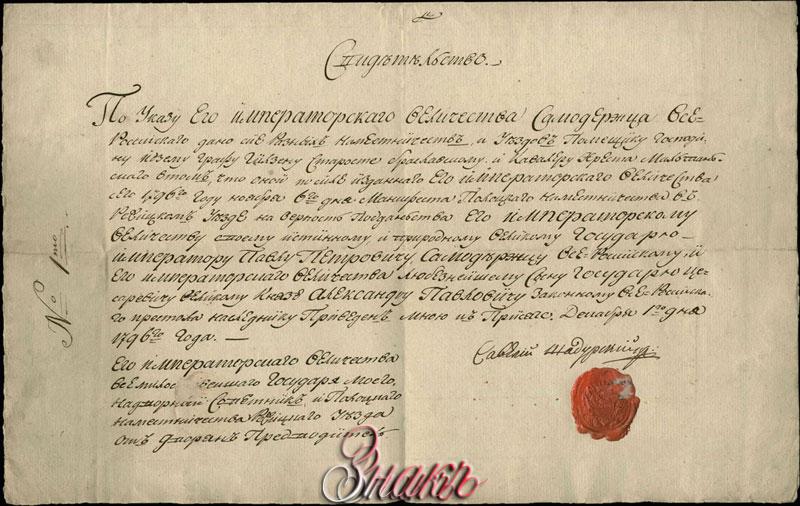 Свидѣтельство.
По Указу Его императорскаго величества Самодержца все-
Россійскаго дано сіе разныхъ намѣстничествъ, и Уѣздовъ Помещику Господи-
ну Іозефу Графу Гильзену Старосте браславскому, и Кавалеру Креста Мальтийс-
скаго втомъ, что оной по силе изданнаго Его императорскаго величества
сего 1796го Году ноября 6го дня Манифеста Полоцкаго намѣстничества въ
Режицкомъ Уезде на верность Подданства Его императорскому
величеству своему истинному, и природному великому Государю
императору Павлу Петровичу Самодержцу все-Россійскому, и
Его императорскаго величества Любезнейшему Сыну Государю це-
саревичу великому Князю Александру Павловичу законному все-Россійска-
го престола наследнику Приведенъ Мною къ Присяге, Декабря 1го дня
1796го Года. —
Его императорскаго величества
всемилос вейшаго Государя моего,
надворный Советникъ, и Полоцкаго
наместничества Режицкаго Уезда
отъ дворянъ Предводитель
Шадурский
№ 1mo
Знакъ